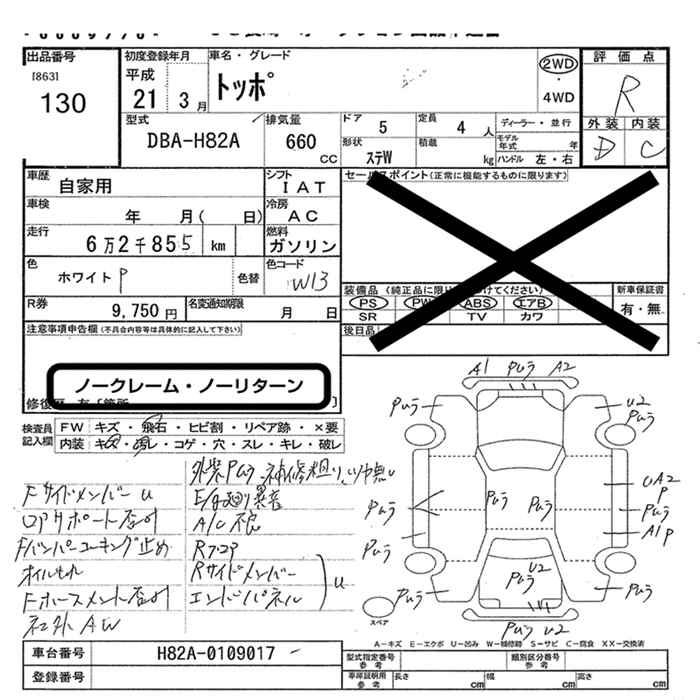 出品番号
[863]
130
初度登録年月
平成
21 3月
車名・グレード
トッポ
2WD
・
4WD
評価点
R
外装 内装
D C
型式
DBA-H82A
排気量
660
CC
ドア
5
定員
4 人
形状
ステW
積載
kg
ディーラー・並行
モデル年式 年
ハンドル 左・右
車歴
自家用
シフト
IAT
車検
年 月( 日)
冷房
AC
走行
6万2千855 km
燃料
ガソリン
色
ホワイトP
色替
色コード
W13
R券
9,750円
名変通知期限
月 日
注意事項申告欄(不具合内容等は具体的に記入して下さい)
ノークレーム・ノーリターン
セールスポイント(正常に機能するものに限ります)
新車保証書
有・無
PS PW ABS エアB
SR TV カワ
後日品
検査員記入欄
FW キズ・飛石・ヒビ割・リペア跡・×要
内装 キズ・汚レ・コゲ・穴・スレ・キレ・破レ
FサイドメンバーU
Fバンパーコーキング止め
オイルもれ
社外AW
E/g廻り異音
A/C不良
Rフロア
Rサイドメンバー
エンドパネル
U
A1 Pムラ A2
Pムラ
U2
Pムラ
Pムラ
Pムラ
Pムラ
UA2
P
Pムラ
A1P
Pムラ
Pムラ
Pムラ
U2
Pムラ
Pムラ U2
スペア
A-キズ E-エクボ U-凹み W-補修跡 S-サビ C-腐食 XX-交換済
車台番号
H82A-0109017
登録番号
型式指定番号
参考
類別区分番号
参考
車庫証明用
参考
長さ cm
幅 cm
高さ cm